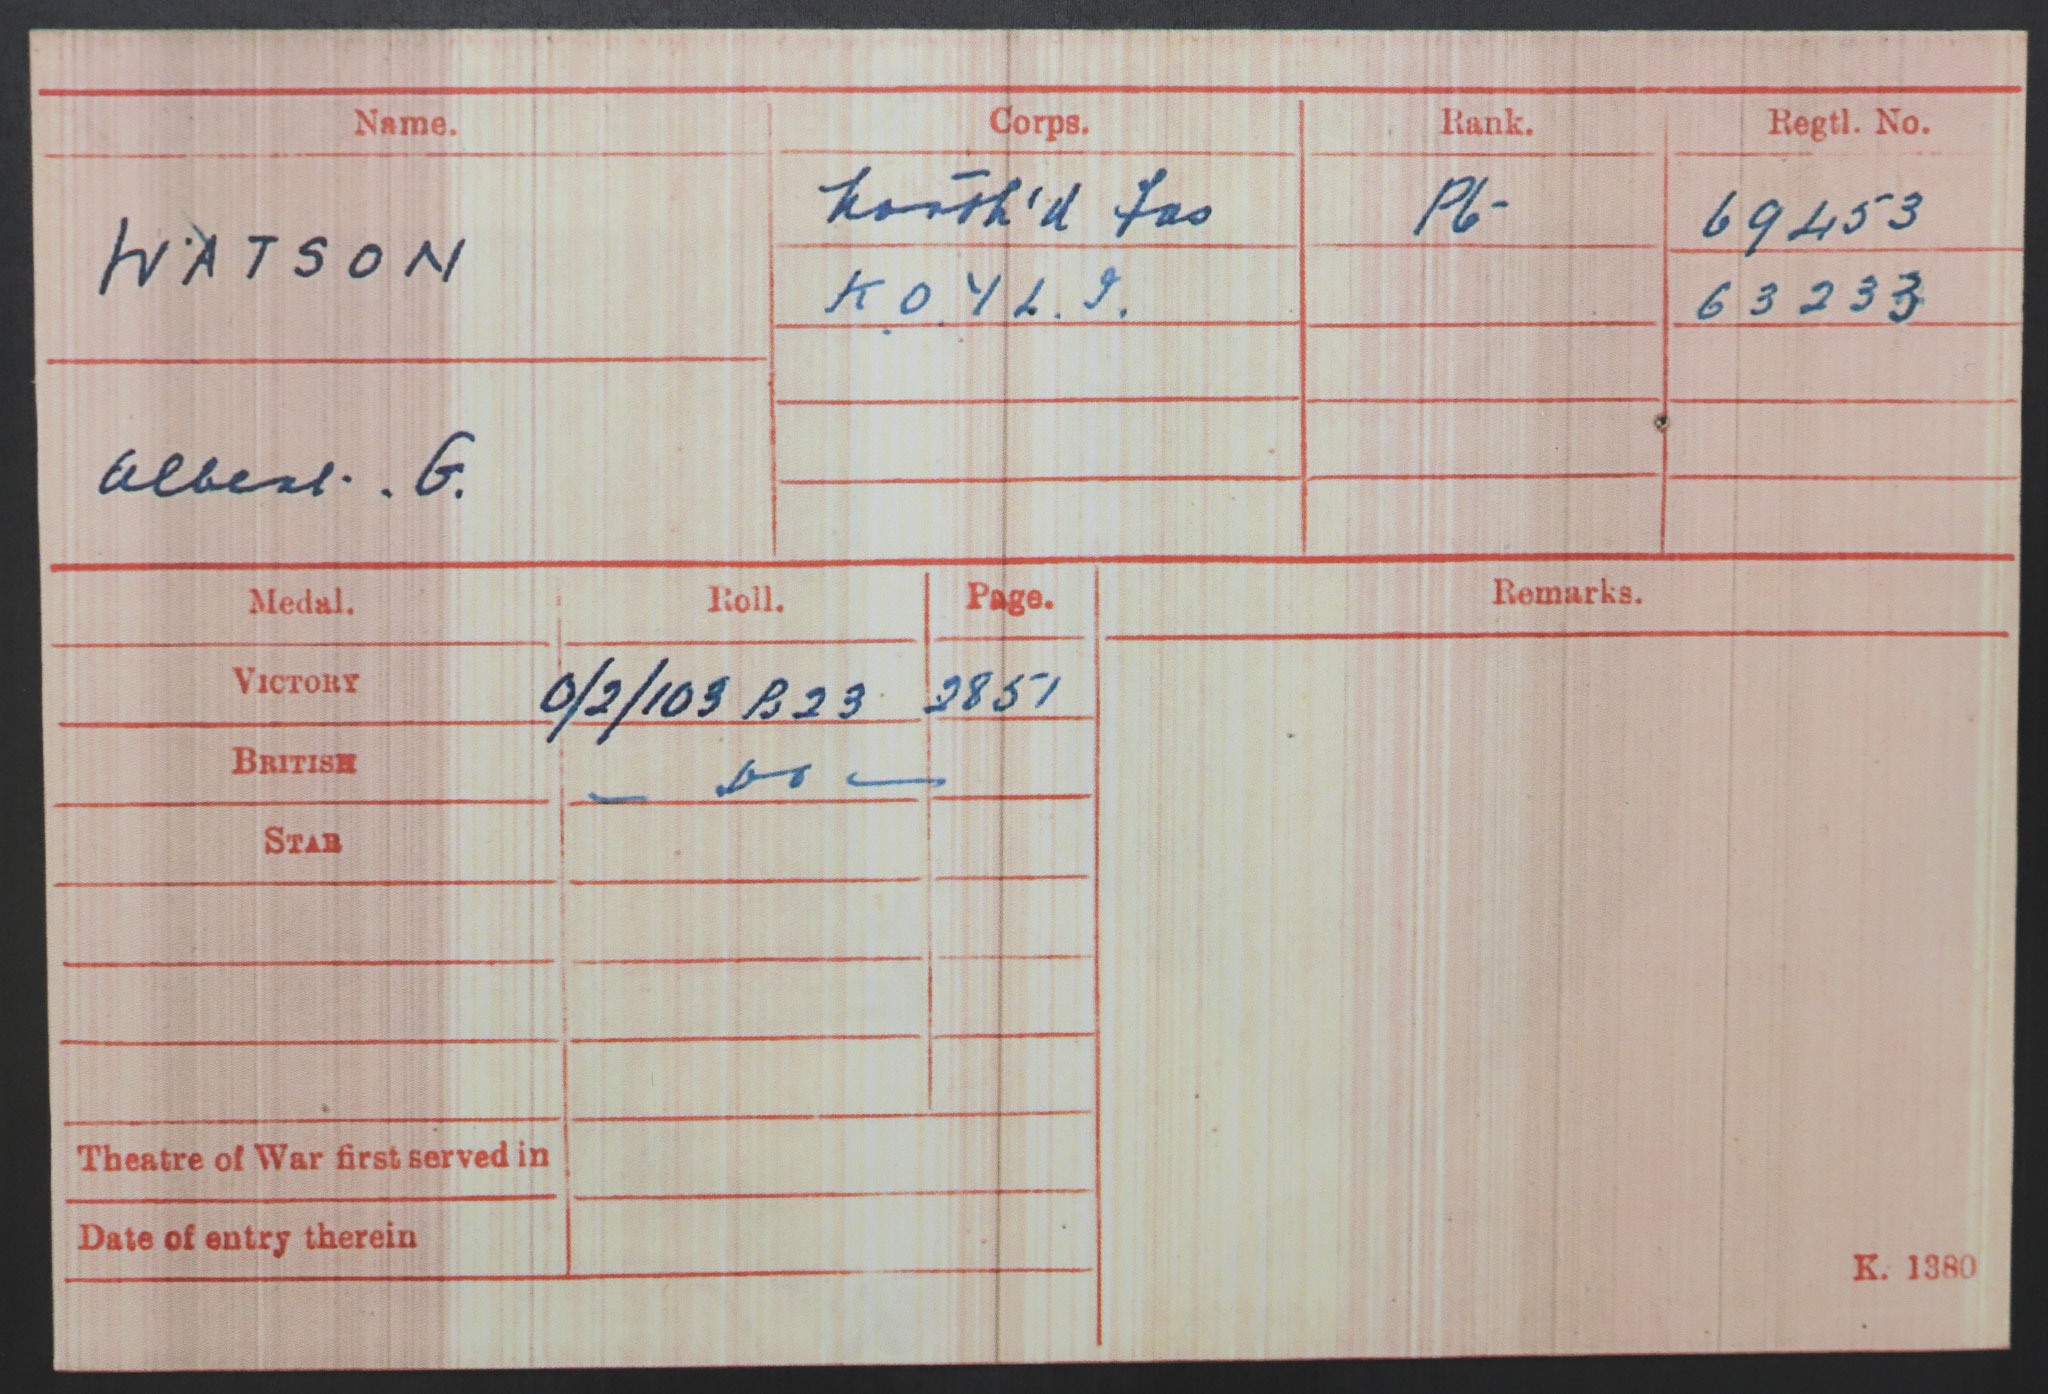 Name. Corps. Rank. Regtl. No.
WATSON
North'd Fus Pte 69453
K.O.Y.L.I. 63233
Albert. G.
Medal. Roll. Page. Remarks.
VICTORY 0/2/103 B23 2851
BRITISH — do —
STAR
Theatre of War first served in
Date of entry therein
K. 1380